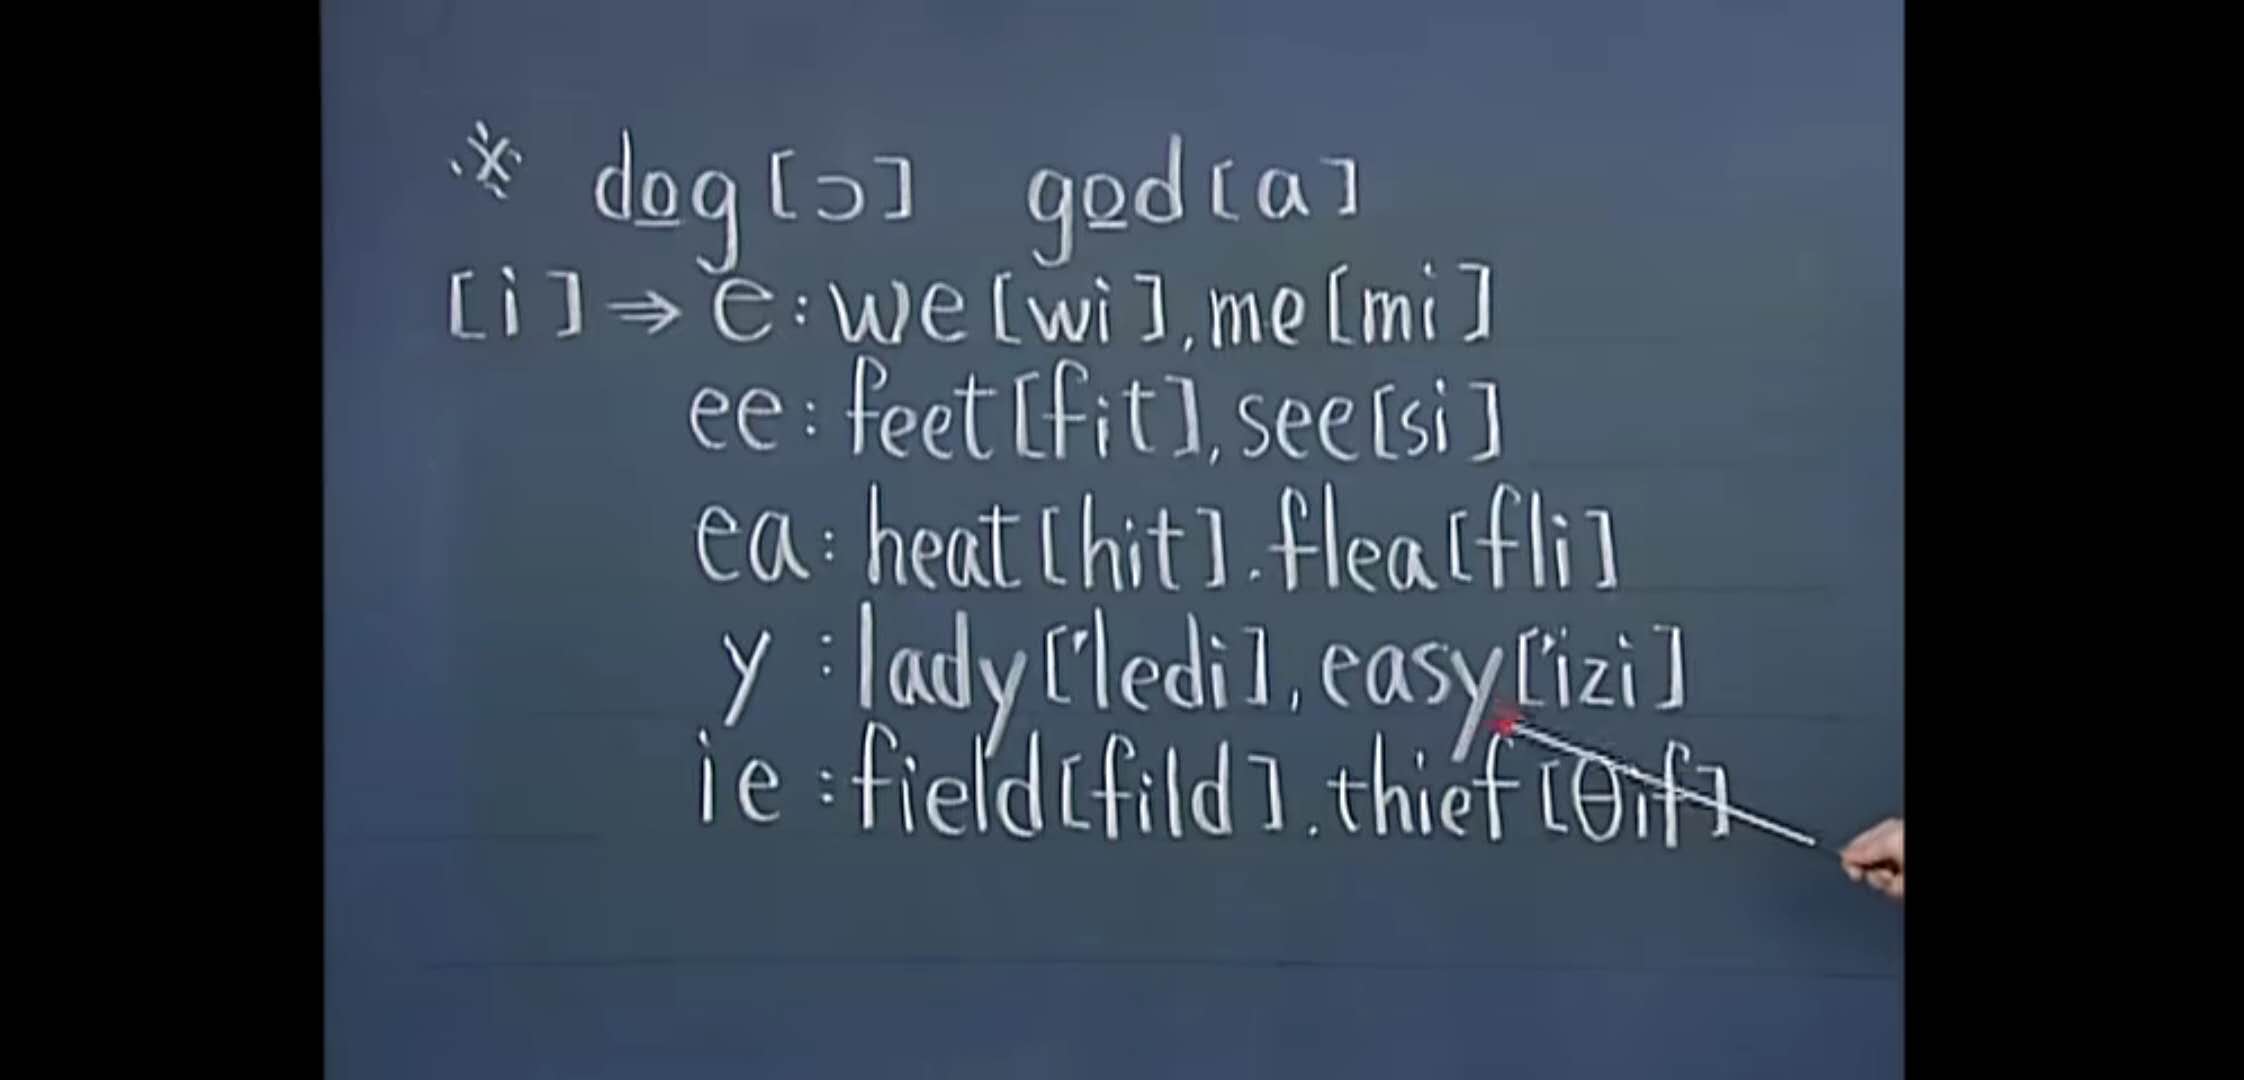 ※ dog [ɔ] god [a]
[i] ⇒ e : we [wi], me [mi]
ee : feet [fit], see [si]
ea : heat [hit]. flea [fli]
y : lady [ˈledi], easy [ˈizi]
ie : field [fild]. thief [θif]